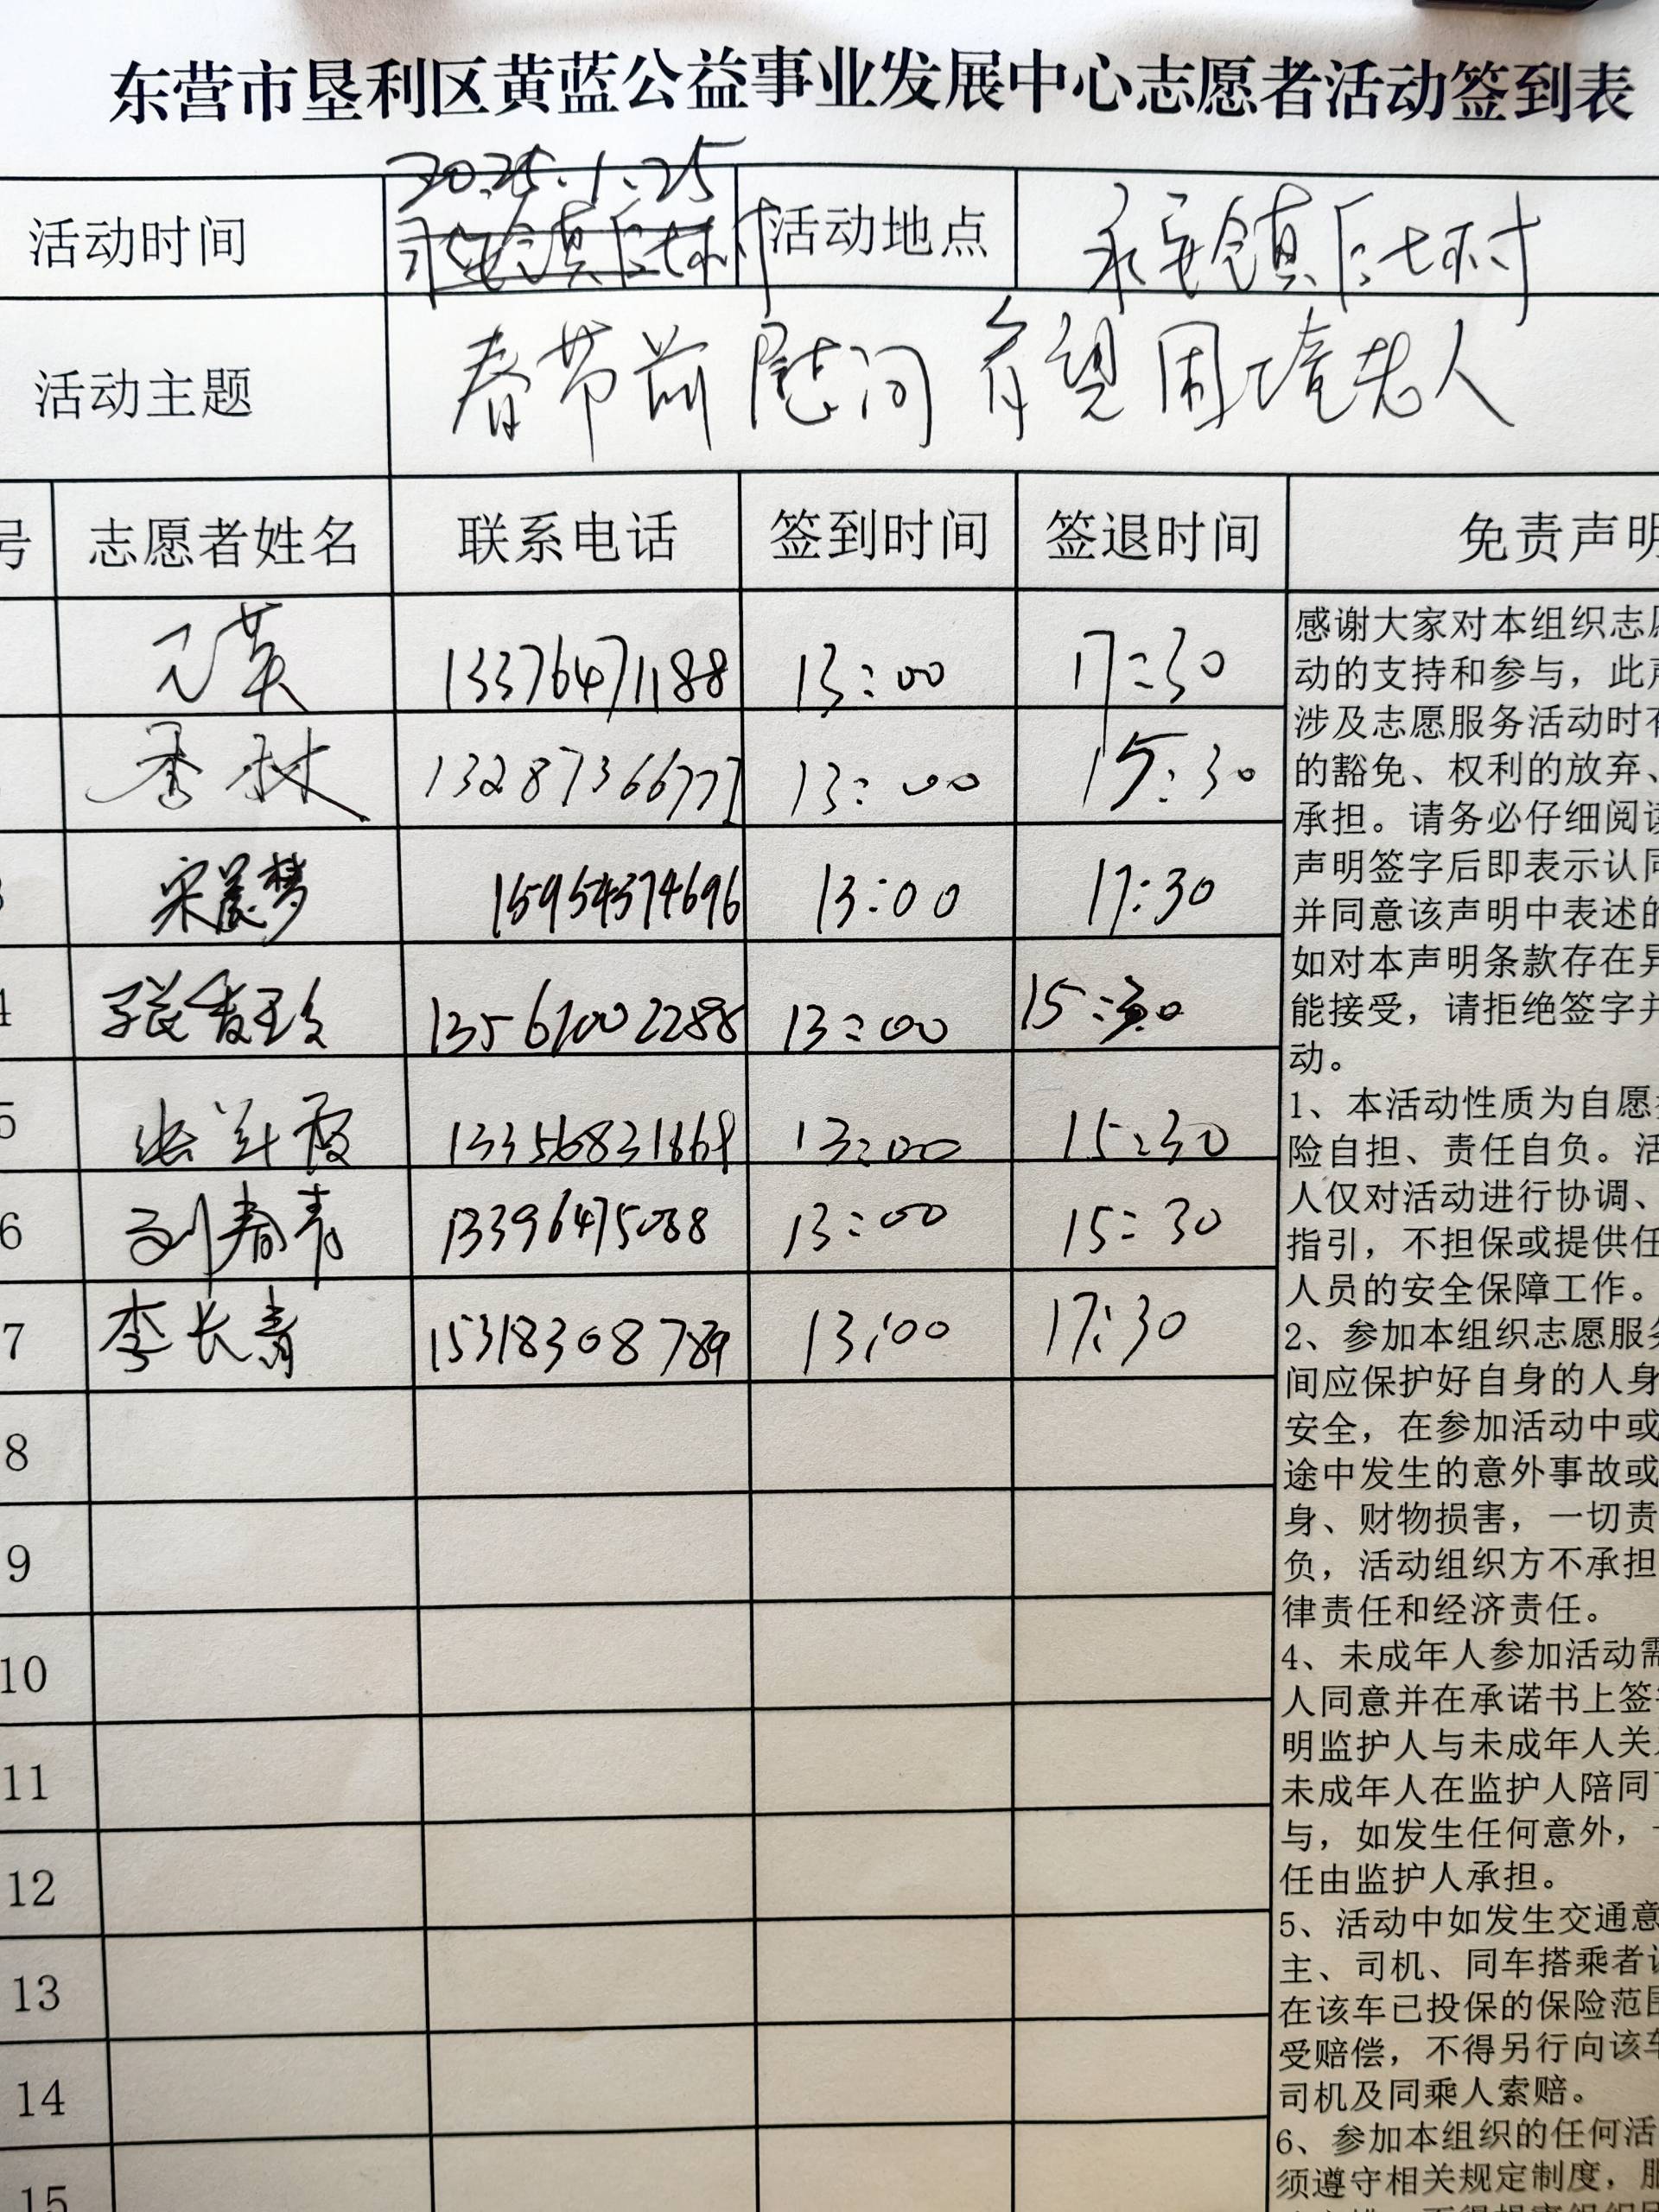 东营市垦利区黄蓝公益事业发展中心志愿者活动签到表
活动时间 2025.1.25 活动地点 永安镇后七村
活动主题 春节前慰问看望困境老人
号 志愿者姓名 联系电话 签到时间 签退时间 免责声明
英 13376471188 13:00 17:30
李 林 13287366777 13:00 15:30
3 宋晨梦 15954374696 13:00 17:30
4 张 13561002288 13:00 15:30
5 张 霞 13356831869 13:00 15:30
6 刘春青 13396475088 13:00 15:30
7 李长青 15318308789 13:00 17:30
8
9
10
11
12
13
14
15
感谢大家对本组织志愿
动的支持和参与，此声
涉及志愿服务活动时有
的豁免、权利的放弃、
承担。请务必仔细阅读
声明签字后即表示认同
并同意该声明中表述的
如对本声明条款存在异
能接受，请拒绝签字并
动。
1、本活动性质为自愿参
险自担、责任自负。活
人仅对活动进行协调、
指引，不担保或提供任
人员的安全保障工作。
2、参加本组织志愿服务
间应保护好自身的人身
安全，在参加活动中或
途中发生的意外事故或
身、财物损害，一切责
负，活动组织方不承担
律责任和经济责任。
4、未成年人参加活动需
人同意并在承诺书上签字
明监护人与未成年人关系
未成年人在监护人陪同下
与，如发生任何意外，
任由监护人承担。
5、活动中如发生交通意
主、司机、同车搭乘者
在该车已投保的保险范围
受赔偿，不得另行向该车
司机及同乘人索赔。
6、参加本组织的任何活
须遵守相关规定制度，服